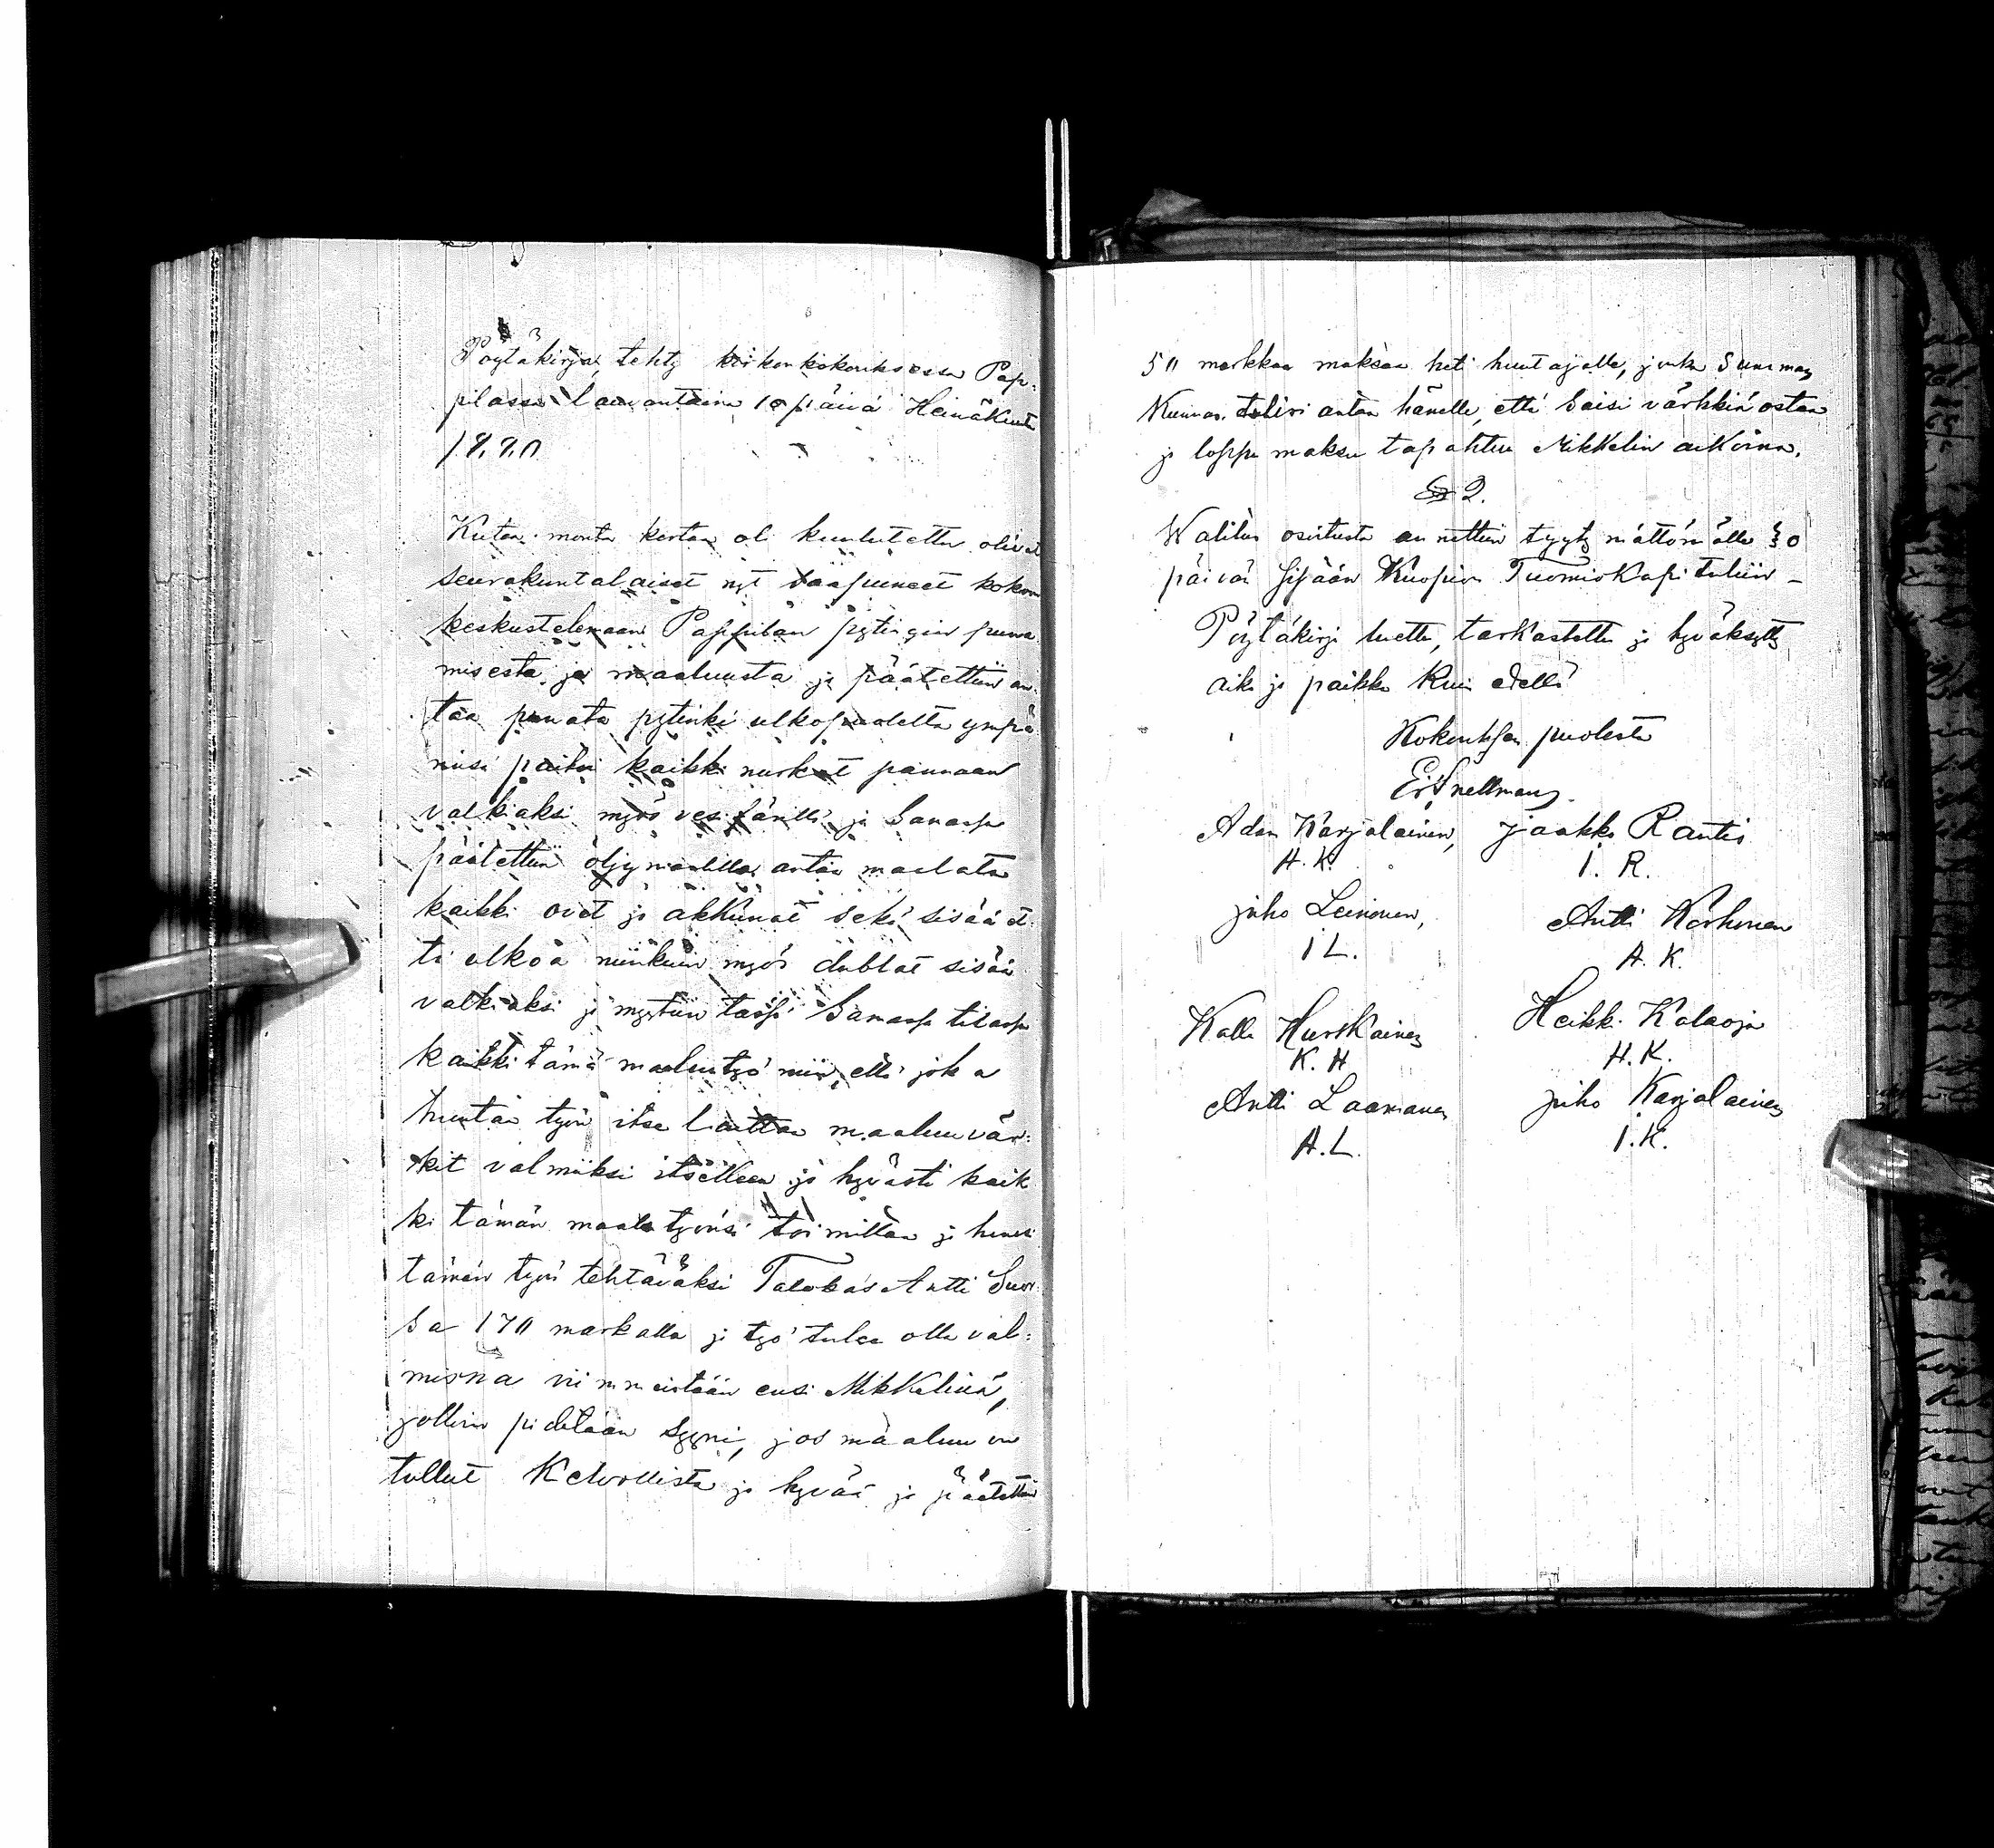 Pöytäkirja, tehty kirkonkokouksessa Pap-
pilassa lauantaina 10 päivä Heinäkuuta
1890
Kuten monta kertaa oli kuulutettu olivat
seurakuntalaiset nyt saapuneet kokoon
keskustelemaan Pappilan pytingin puna
misesta ja maaluusta ja päätettiin an-
taa punata pytinki ulkopuolelta ympä
riisi paitsi kaikki nurkat pannaan
valkiaksi myös vesi ja Samassa
päätettiin öljymaalilla antaa maalata
kaikki ovet ja akkunat sekä sisää et-
tä ulkoa niinkuin myös dublat sisää
valkiaksi ja myytiin tässä Samassa tilassa
kaikki tämä maaluutyö niin, että joka
huutaa työn itse laittaa maaluuvär-
kit valmiiksi itselleen ja hyvästi kaik
ki tämän maalu työnsä toimittaa ja huusi
tämän työn tehtäväksi Talokas Antti Suor
sa 170 markalla ja työ tulee olla val-
misna viimmeistään ensi Mikkelinä,
jolloin pidetään syyni, jos maaluu on
tullut Kelvollista ja hyvää ja päätettiin
50 markkaa maksaa heti huutajalle, jonka Summan
Kunnan antaa hänelle, että Saisi värkkiä ostaa
ja loppu maksu tapahtuu Mikkelin aikoina.
§ 2.
Walitus osoitusta annettiin tyytymättömälle 30
päivän sisään Kuopion Tuomiokapituliin –
Pöytäkirja luettu, tarkastettu ja hyväksytty
aika ja paikka Kuin edellä
Kokouksen puolesta
Er. Snellman
Adam Karjalainen, Jaakko Rantis
A. K. I. R.
Juho Leinonen, Antti Korhonen
I L. A. K.
Kalle Hurskainen Heikki Kalaoja
K. H H. K.
Antti Laamanen Juho Karjalainen
A. L. I. K.